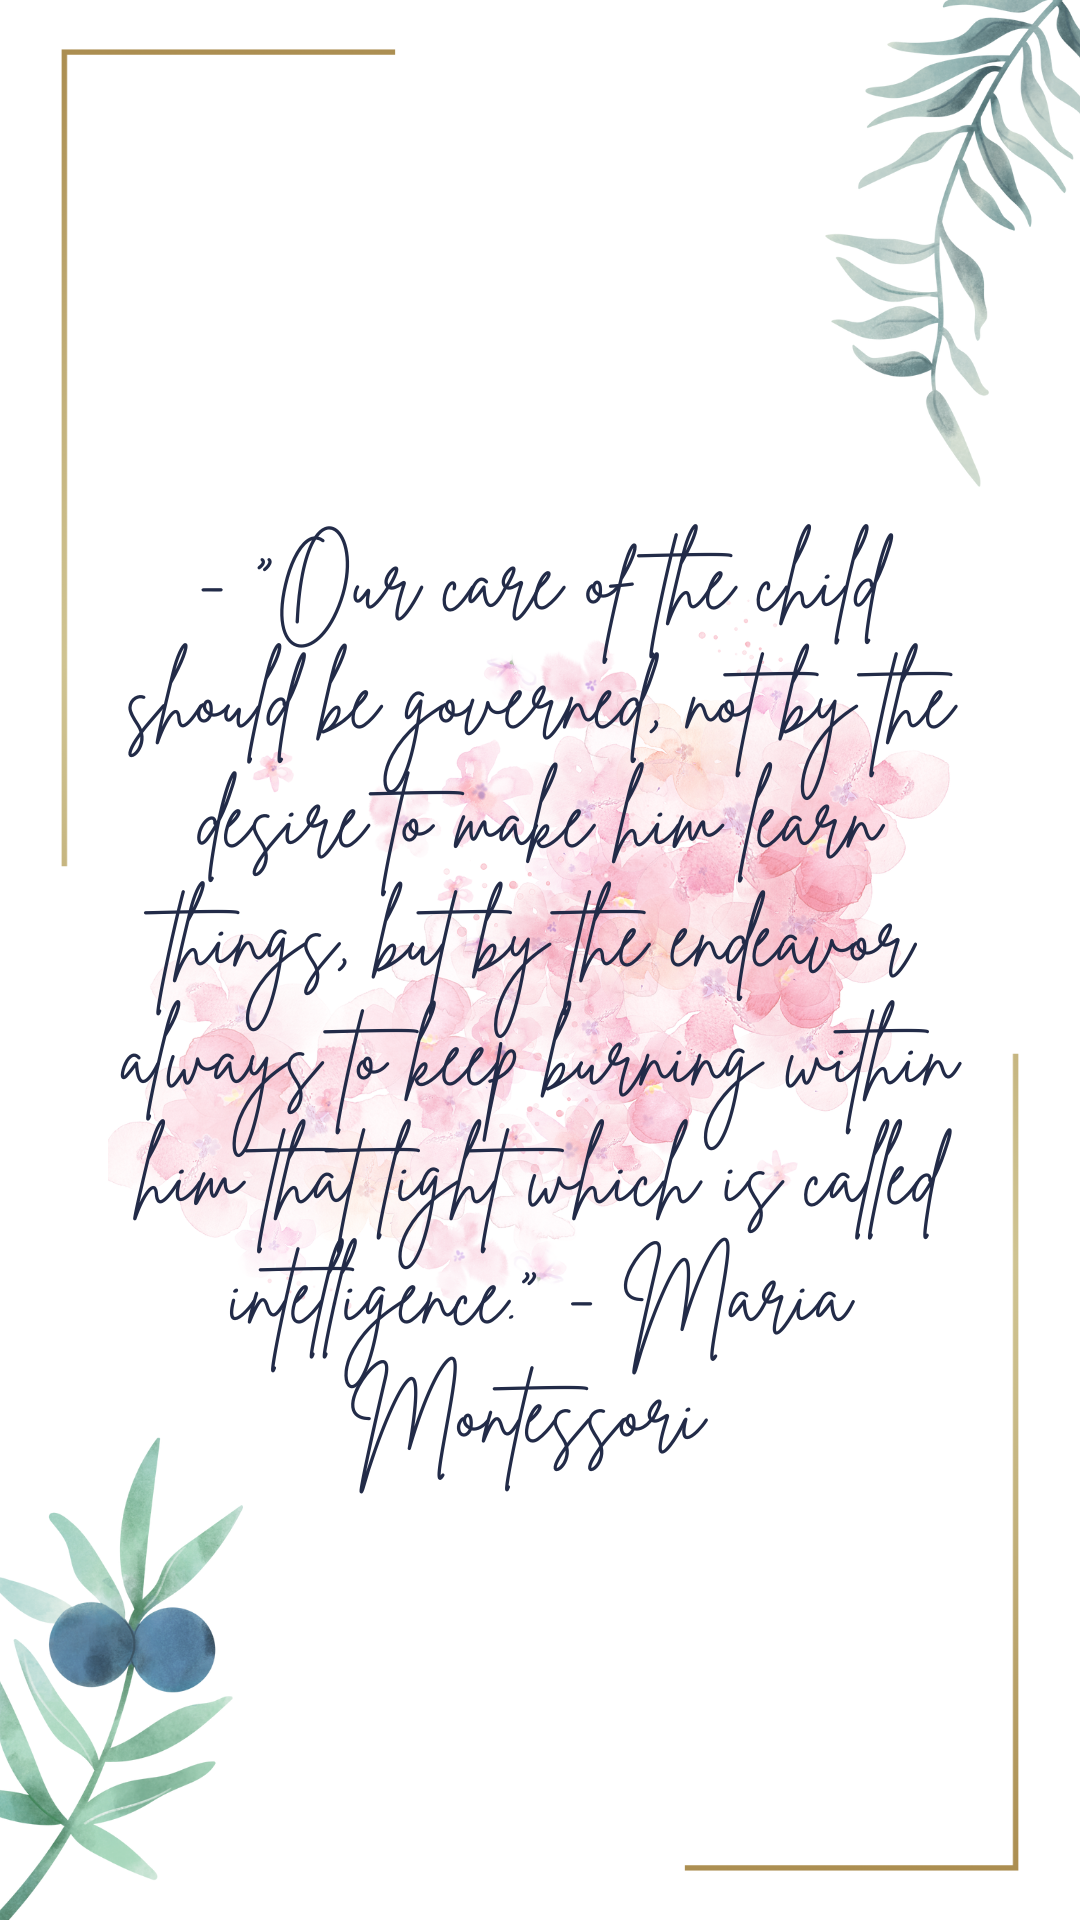 - "Our care of the child
should be governed, not by the
desire to make him learn
things, but by the endeavor
always to keep burning within
him that light which is called
intelligence." - Maria
Montessori